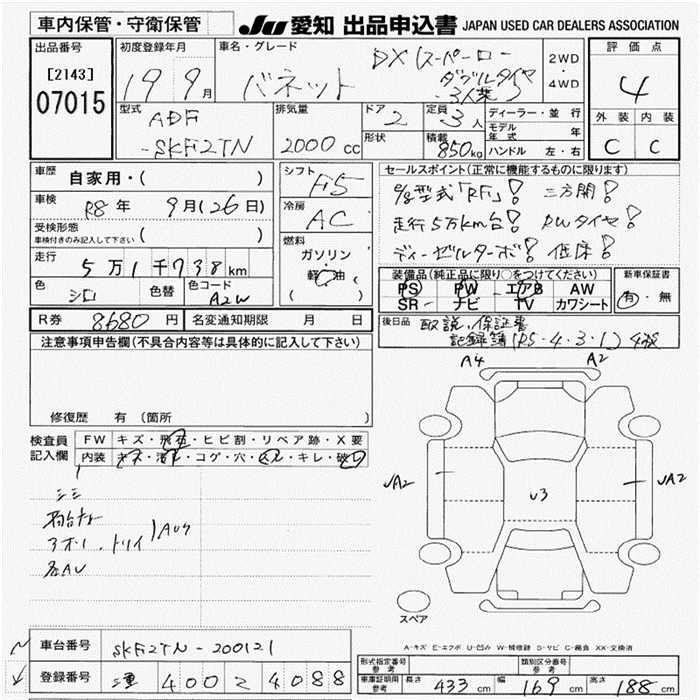 車内保管・守衛保管
JU 愛知 出品申込書 JAPAN USED CAR DEALERS ASSOCIATION
出品番号
[2143]
07015
初度登録年月
19 9月
車名・グレード
バネット
DX (スーパーロー
ダブルタイヤ
3人乗)
2WD
・
4WD
評価点
4
外装 内装
C C
型式
ADF
-SKF2TN
排気量
2000 cc
ドア
2
形状
定員
3人
積載
850kg
ディーラー・並行
モデル年式 年
ハンドル 左・右
車歴
自家用・( )
車検
R8年 9月(26日)
受検形態
車検付きのみ記入して下さい ( )
走行
5万1千738km
色
シロ
色替
色コード
A2W
シフト
F5
冷房
AC
燃料
ガソリン
軽油
( )
セールスポイント(正常に機能するものに限ります)
8/8型式「RF」! 三方開!
走行5万km台! RWタイヤ!
ディーゼルターボ! 低床!
装備品(純正品に限り○をつけてください)
PS PW エアB AW
SR ナビ TV カワシート
新車保証書
有・無
R券 8680円
名変通知期限 月 日
後日品 取説、保証書
記録簿(R5・4・3・1)4枚
注意事項申告欄(不具合内容等は具体的に記入して下さい)
修復歴 有(箇所 )
A4 A2
検査員
記入欄
FW キズ・飛石・ヒビ割・リペア跡・X要
内装 キズ・汚れ・コゲ・穴・スレ・キレ・破レ
UA2
U3
UA2
スペア
A-キズ E-エクボ U-凹み W-補修跡 S-サビ C-腐食 XX-交換済
車台番号 SKF2TN-200121
登録番号 三重 400 え 4088
形式指定番号
参考
類別区分番号
参考
車庫証明用
参考
長さ 433cm 幅 169cm 高さ 188cm